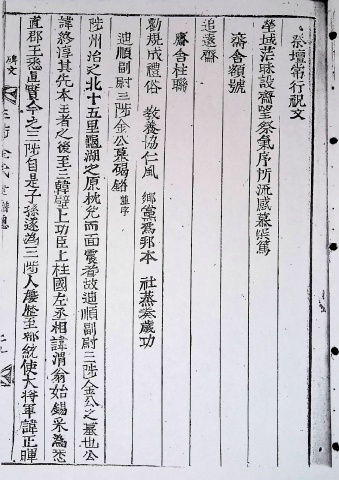 祭壇常行祝文
塋域茫昧設齋望祭氣序所流感慕深篤
齋舍額號
追遠齋
齋舍柱聯
勸規成禮俗 教養協仁風 鄉黨爲邦本 社蒸奏歲功
迪順副尉三陟金公墓碣銘 並序
陟州治之北十五里 湖之原枕兌而面震者故迪順副尉三陟金公之墓也公
諱 淳其先本王者之後至三韓壁上功臣上柱國左丞相諱渭翁始錫采爲悉
直郡王悉直實今之三陟自是子孫遂爲三陟人 至都統使大將軍諱正暉
碑文